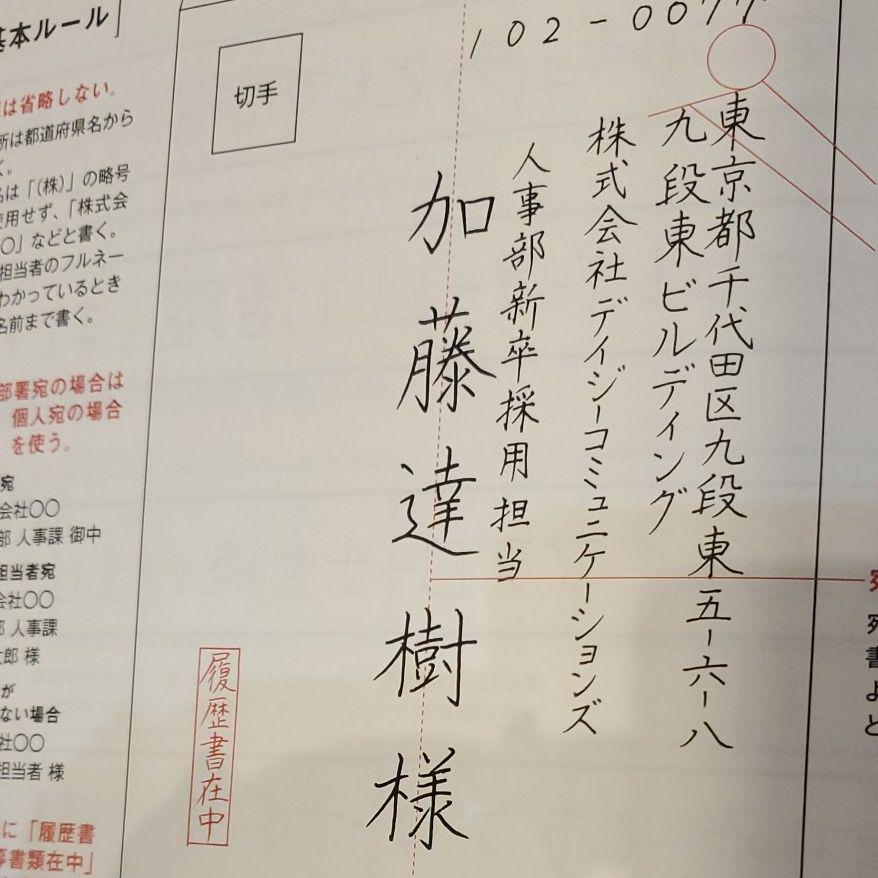 102-0077
東京都千代田区九段東五-六-八
九段東ビルディング
株式会社デイジーコミュニケーションズ
人事部新卒採用担当
加藤達樹様
切手
履歴書在中
基本ルール
は省略しない。
所は都道府県名から
く。
名は「(株)」の略号
使用せず、「株式会
〇」などと書く。
担当者のフルネー
わかっているとき
名前まで書く。
部署宛の場合は
個人宛の場合
を使う。
宛
会社〇〇
部 人事課 御中
担当者宛
会社〇〇
部 人事課
太郎 様
が
ない場合
社〇〇
担当者 様
に「履歴書
書類在中」
宛
書
よ
と